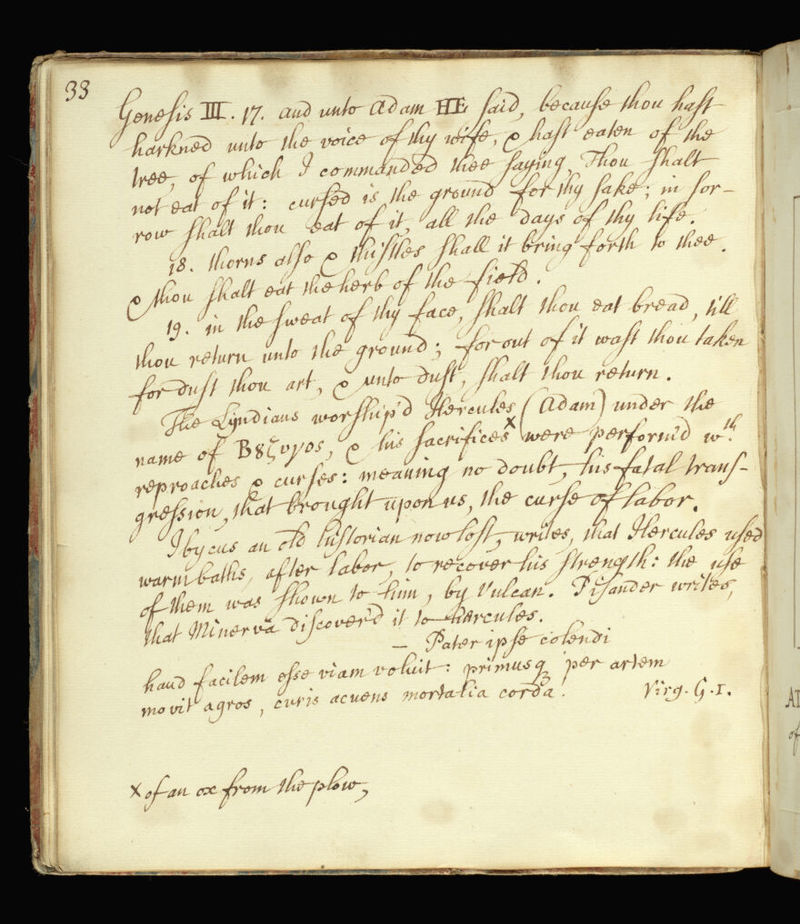 33
Genesis III. 17. and unto Adam HE said, because thou hast
harkned unto the voice of thy wife, & hast eaten of the
tree, of which I commanded thee saying, Thou shalt
not eat of it: cursed is the ground for thy sake; in sor-
row shalt thou eat of it, all the days of thy life.
18. thorns also & thistles shall it bring forth to thee.
& thou shalt eat the herb of the field.
19. in the sweat of thy face, shalt thou eat bread, till
thou return unto the ground; for out of it wast thou taken
for dust thou art, & unto dust, shalt thou return.
The Lyndians worship'd Hercules (Adam) under the
name of Βȣζυγος, & his sacrifices x were perform'd wth.
reproaches & curses: meaning no doubt, his fatal trans-
gression, that brought upon us, the curse of labor.
Ibycus an old historian now lost, writes, that Hercules used
warm baths, after labor, to recover his strength: the use
of them was shown to him, by Vulcan. Pisander writes,
that Minerva discover'd it to hercules.
— Pater ipse colendi
haud facilem esse viam voluit: primusq per artem
movit agros, curis acuens mortalia corda. Virg. G. 1.
x of an ox from the plow,